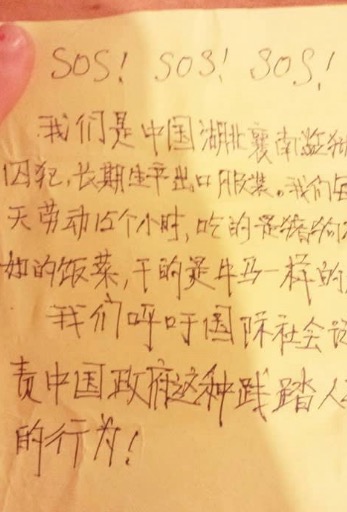 SOS! SOS! SOS!
我们是中国湖北襄南监狱
囚犯,长期生产出口服装。我们每
天劳动15个小时,吃的是猪狗不
如的饭菜,干的是牛马一样的
我们呼吁国际社会谴
责中国政府这种践踏人
的行为!